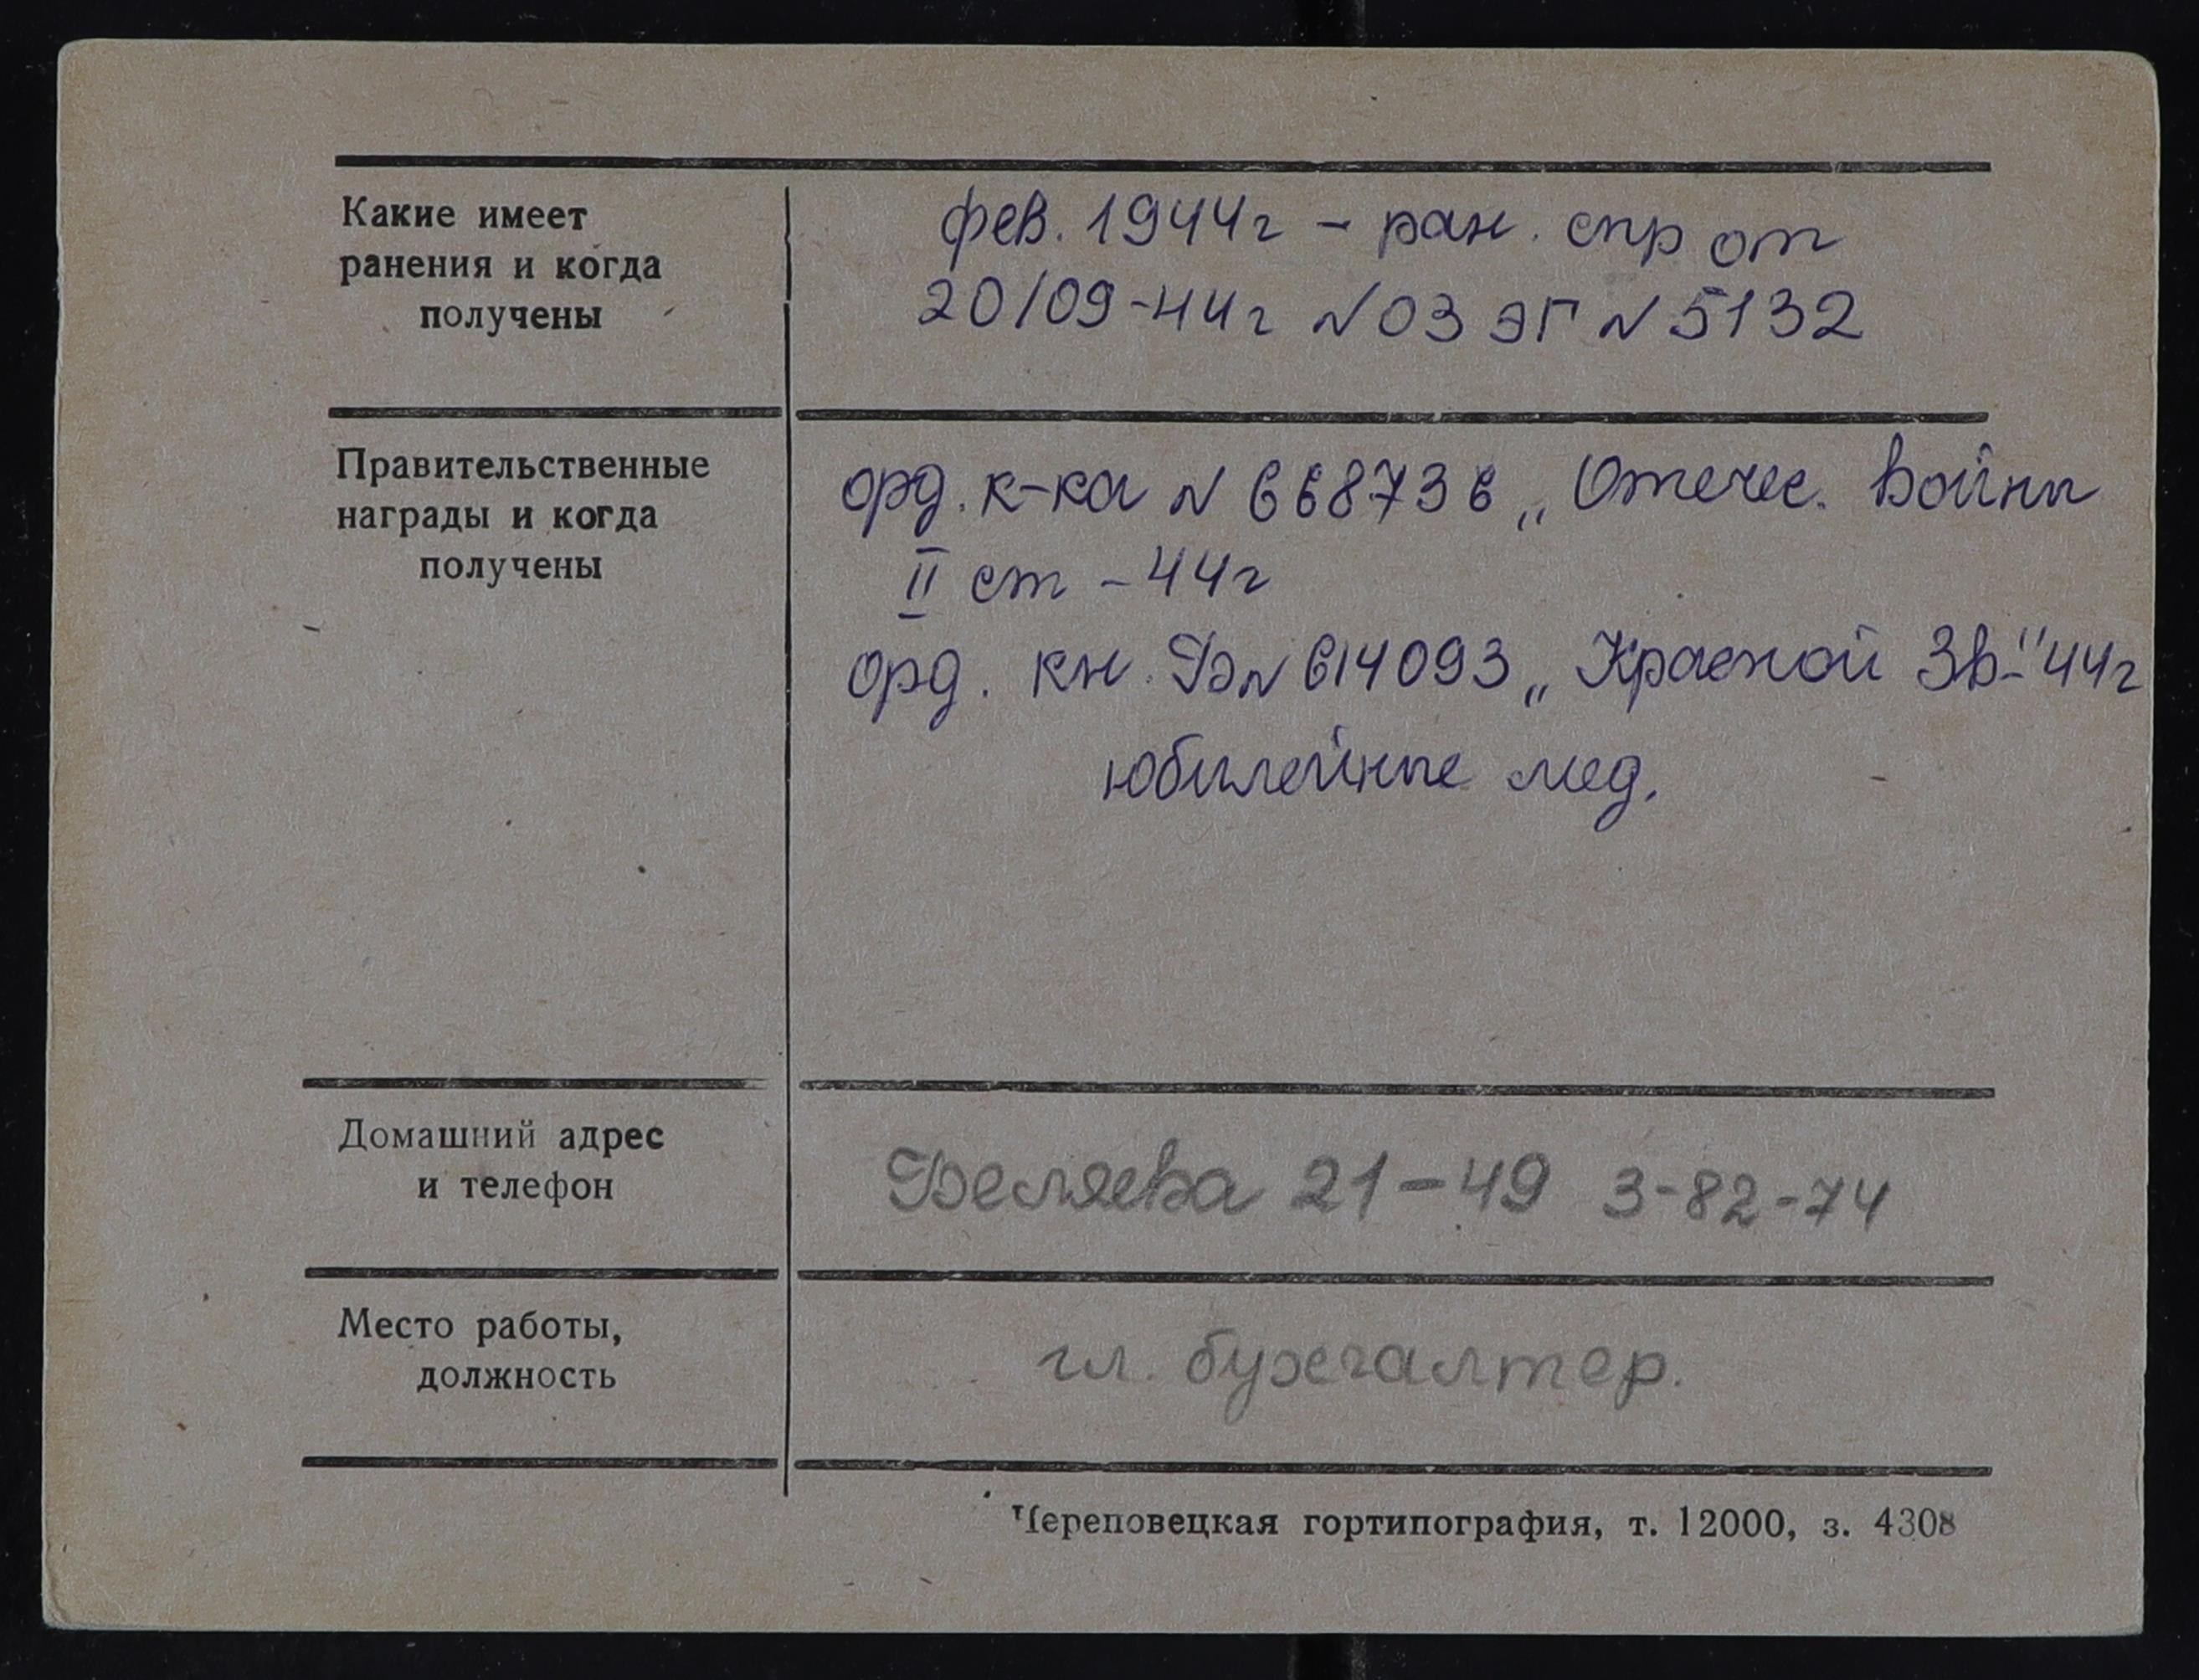 Какие имеет
ранения и когда
получены
фев. 1944г - ран. спр от
20/09-44г №03 ЭГ №5132
Правительственные
награды и когда
получены
орд. к-ка № 668736 „Отечес. Войны
II ст - 44г
орд. кн. Б№ 614093 „Красной Зв-" 44г
юбилейные мед.
Домашний адрес
и телефон
Беляева 21-49 3-82-74
Место работы,
должность
гл. бухгалтер.
Череповецкая гортипография, т. 12000, з. 4308